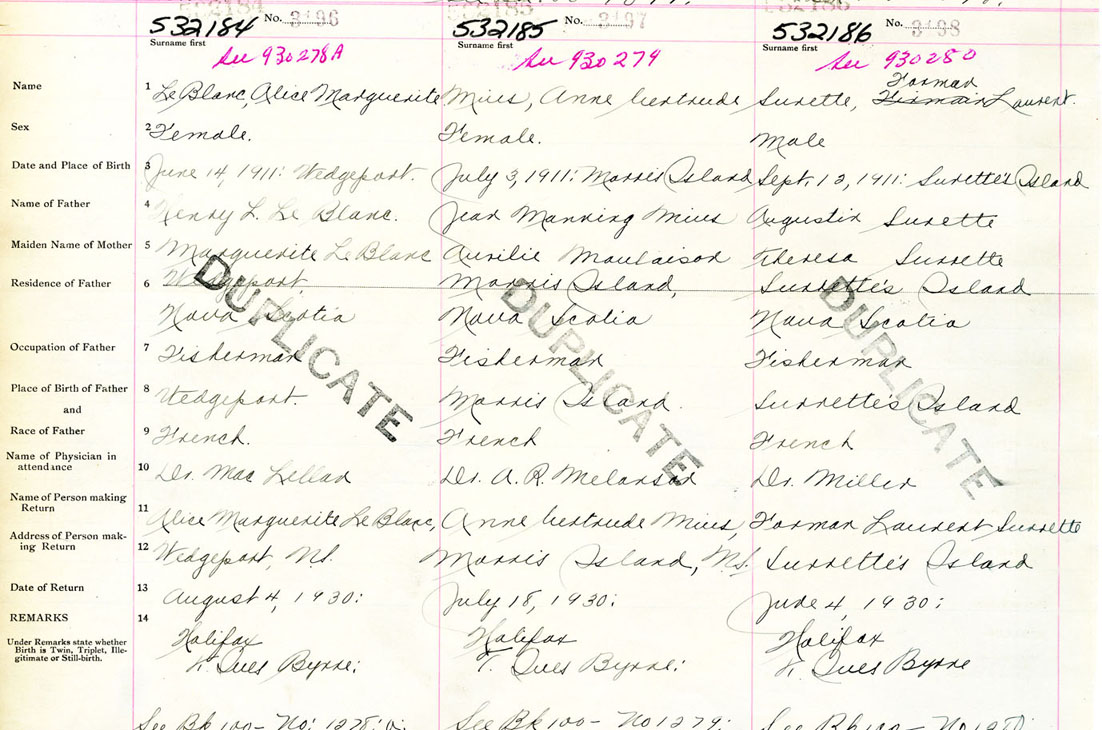 532184 No. 3196
532185 No. 3197
532186 No. 3198
Surname first
Surname first
Surname first
See 930278A
See 930279
See 930280
Name
1 Le Blanc, Alice Marguerite
Mius, Anne Gertrude
Forman
Surette, Firmain Laurent.
Sex
2 Female.
Female.
Male
Date and Place of Birth
3 June 14, 1911: Wedgeport.
July 3, 1911: Morris Island
Sept. 13, 1911: Surette's Island
Name of Father
4 Henry L. Le Blanc.
Jean Manning Mius
Augustin Surette
Maiden Name of Mother
5 Marguerite Le Blanc
Aurilie Moulaison
Theresa Surrette
Residence of Father
6 Wedgeport,
Morris Island,
Surrette's Island
Nova Scotia
Nova Scotia
Nova Scotia
Occupation of Father
7 Fisherman
Fisherman
Fisherman
Place of Birth of Father
8 Wedgeport.
Morris Island.
Surrette's Island
and
Race of Father
9 French.
French
French
Name of Physician in
attendance
10 Dr. Mac Lellan
Dr. A. R. Melanson
Dr. Miller
Name of Person making
Return
11 Alice Marguerite Le Blanc,
Anne Gertrude Mius,
Forman Laurent Surrette
Address of Person mak-
ing Return
12 Wedgeport, N.S.
Morris Island, N.S.
Surrette's Island
Date of Return
13 August 4, 1930:
July 18, 1930:
June 4, 1930:
REMARKS
14
Under Remarks state whether
Birth is Twin, Triplet, Ille-
gitimate or Still-birth.
Halifax
Halifax
Halifax
Ives Byrne:
Ives Byrne:
Ives Byrne
See Bk 100 - No: 1278:
See Bk 100 - No 1279:
See Bk 100 - No 1280
DUPLICATE
DUPLICATE
DUPLICATE